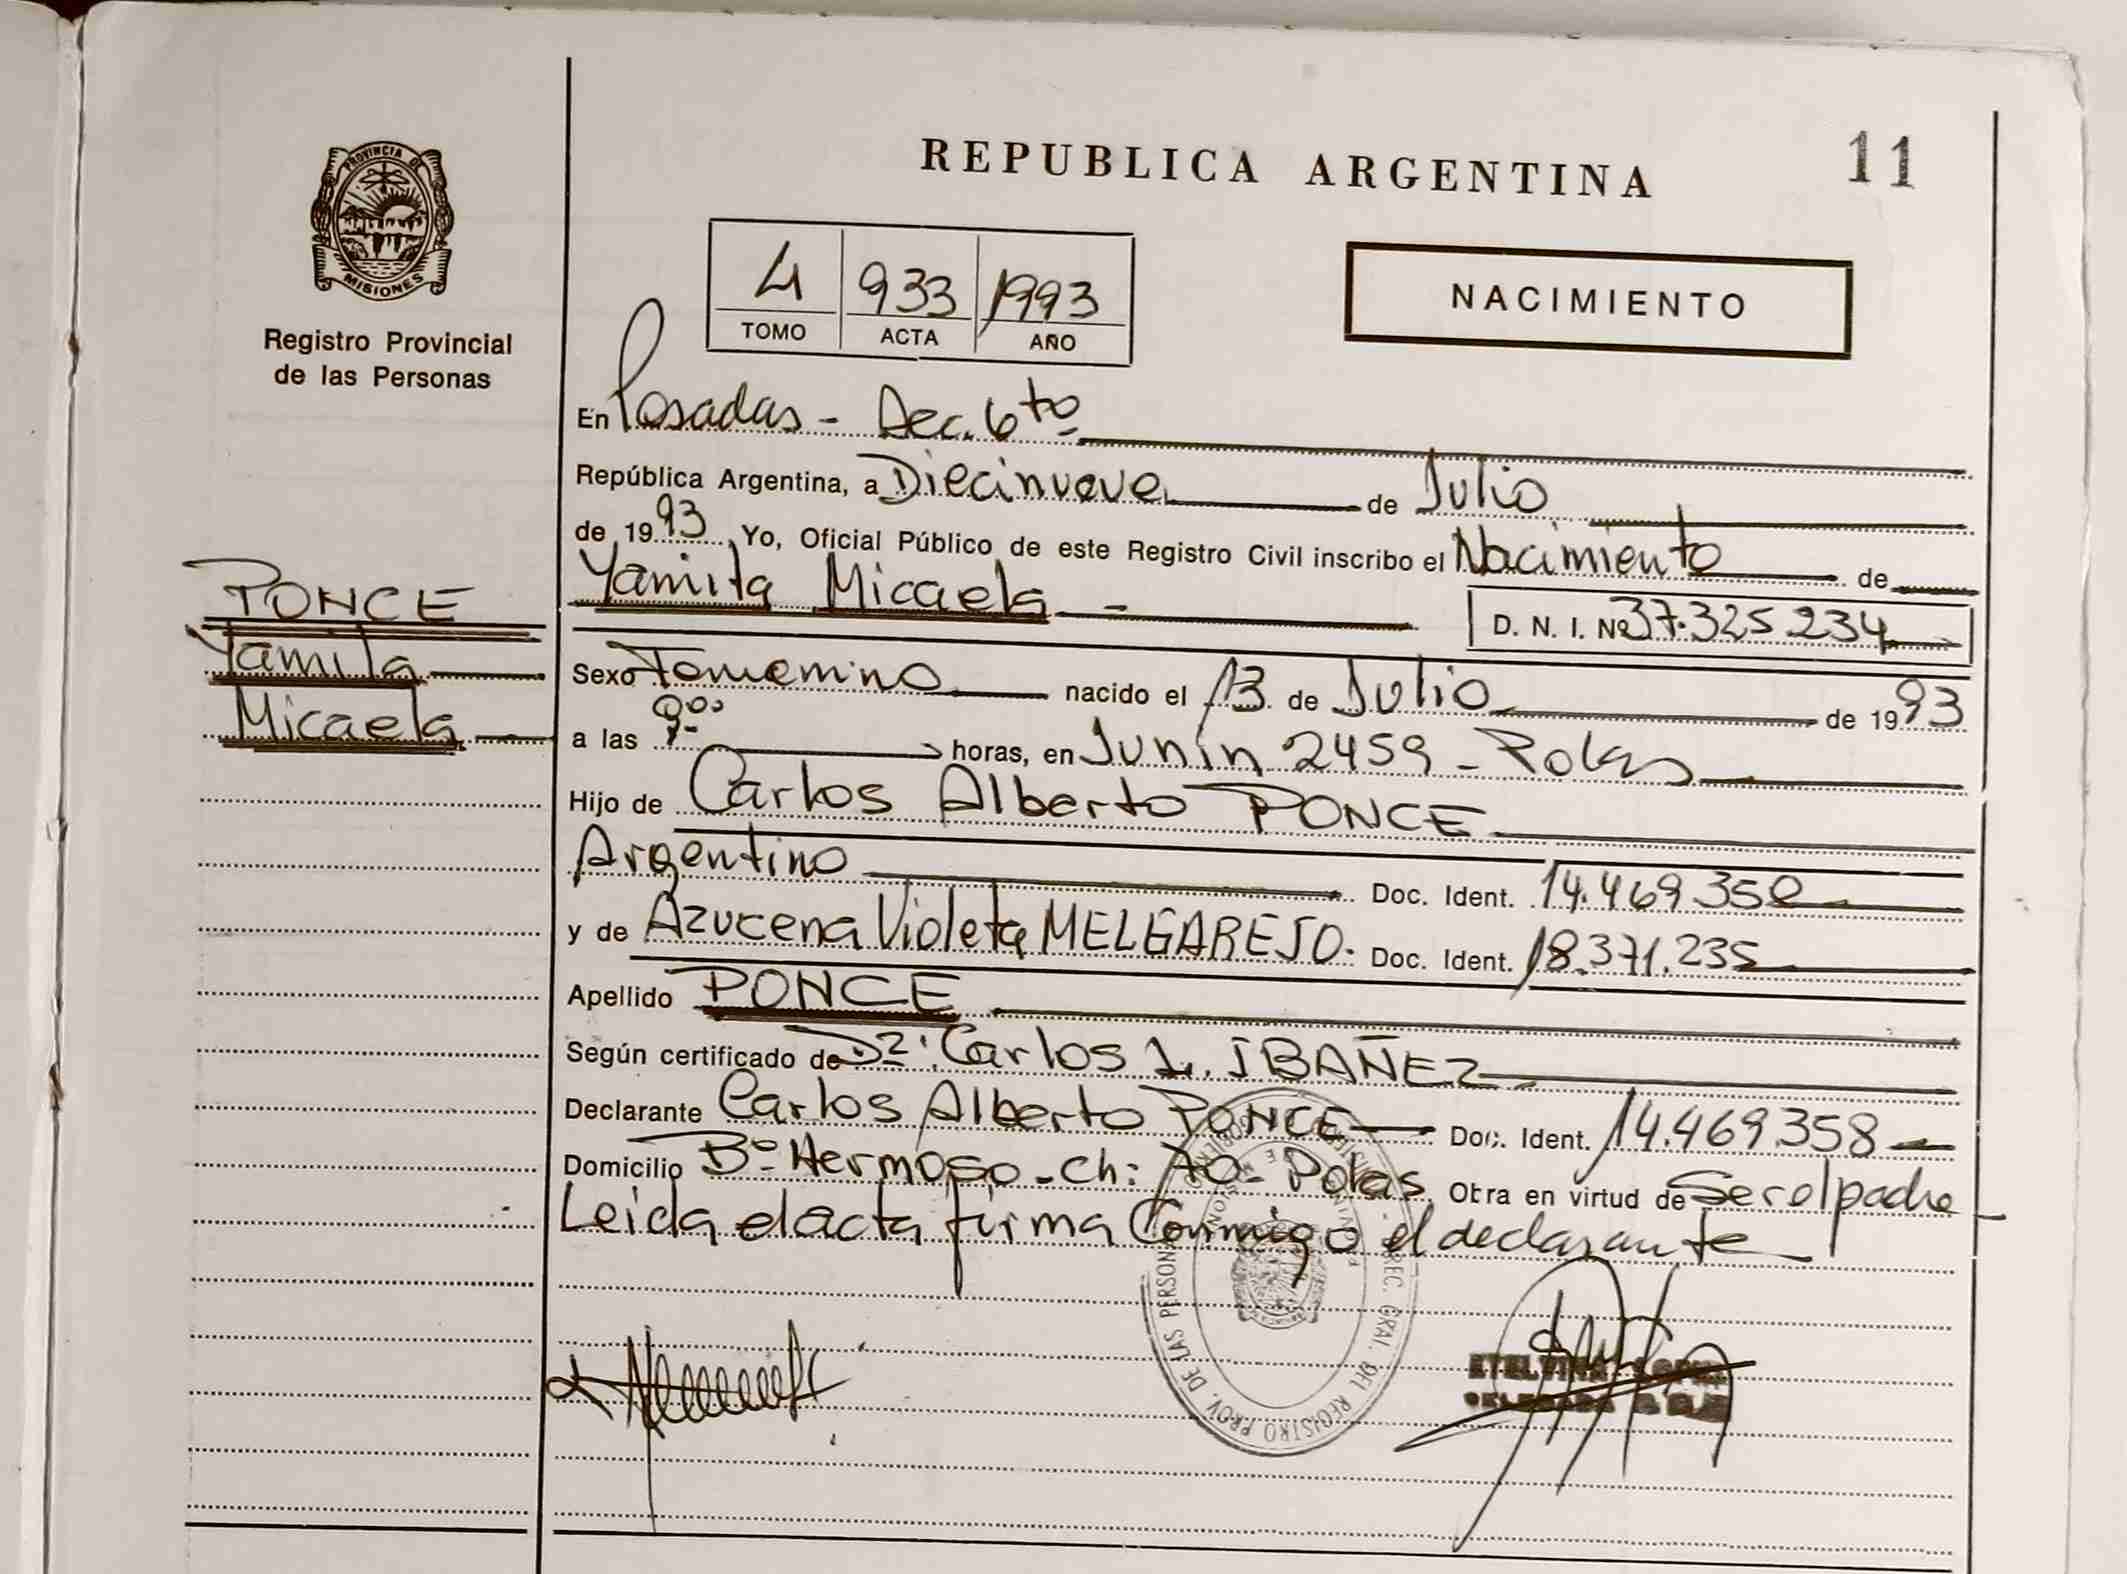 REPUBLICA ARGENTINA
11
PROVINCIA DE
MISIONES
Registro Provincial
de las Personas
4 933 1993
TOMO ACTA AÑO
NACIMIENTO
En Posadas - Secc. 6to
República Argentina, a Diecinueve de Julio
de 1993 Yo, Oficial Público de este Registro Civil inscribo el Nacimiento de
Yamila Micaela -
D. N. I. Nº 37.325.234
PONCE
Yamila
Micaela
Sexo Femenino nacido el 13 de Julio de 1993
a las 9.00 horas, en Junín 2459 - Pdas
Hijo de Carlos Alberto PONCE
Argentino Doc. Ident. 14.469.358
y de Azucena Violeta MELGAREJO. Doc. Ident. 18.371.235
Apellido PONCE
Según certificado de Dr. Carlos IBAÑEZ
Declarante Carlos Alberto PONCE Doc. Ident. 14.469.358
Domicilio Bº Hermoso - Ch: 70 - Pdas. Otra en virtud de Ser el padre
Leida el acta firma Conmigo el declarante
DEL REGISTRO PROV. DE LAS
ETELVINA